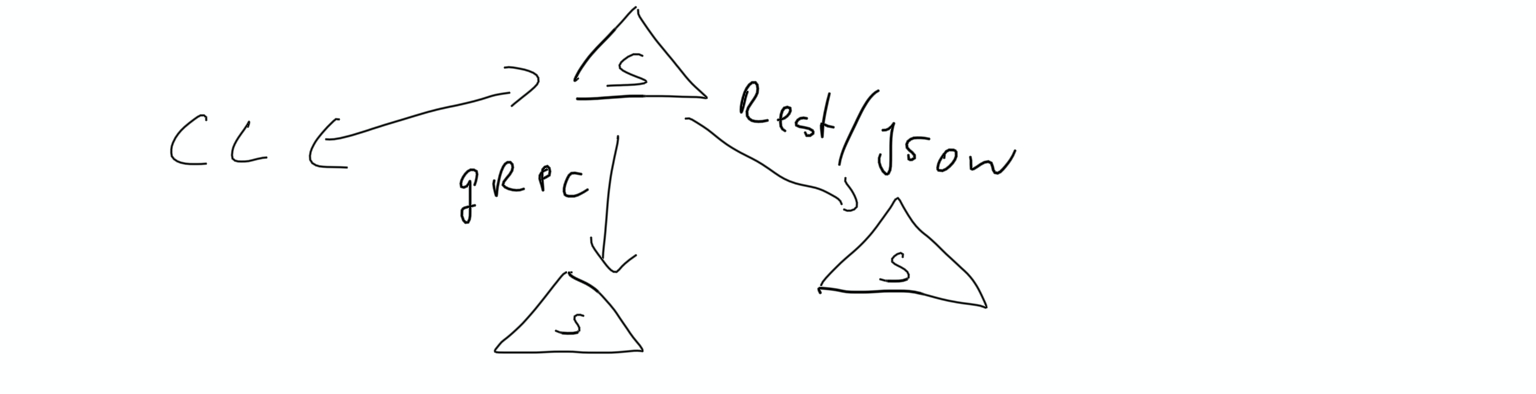 S
CL
Rest/json
gRPC
S
S